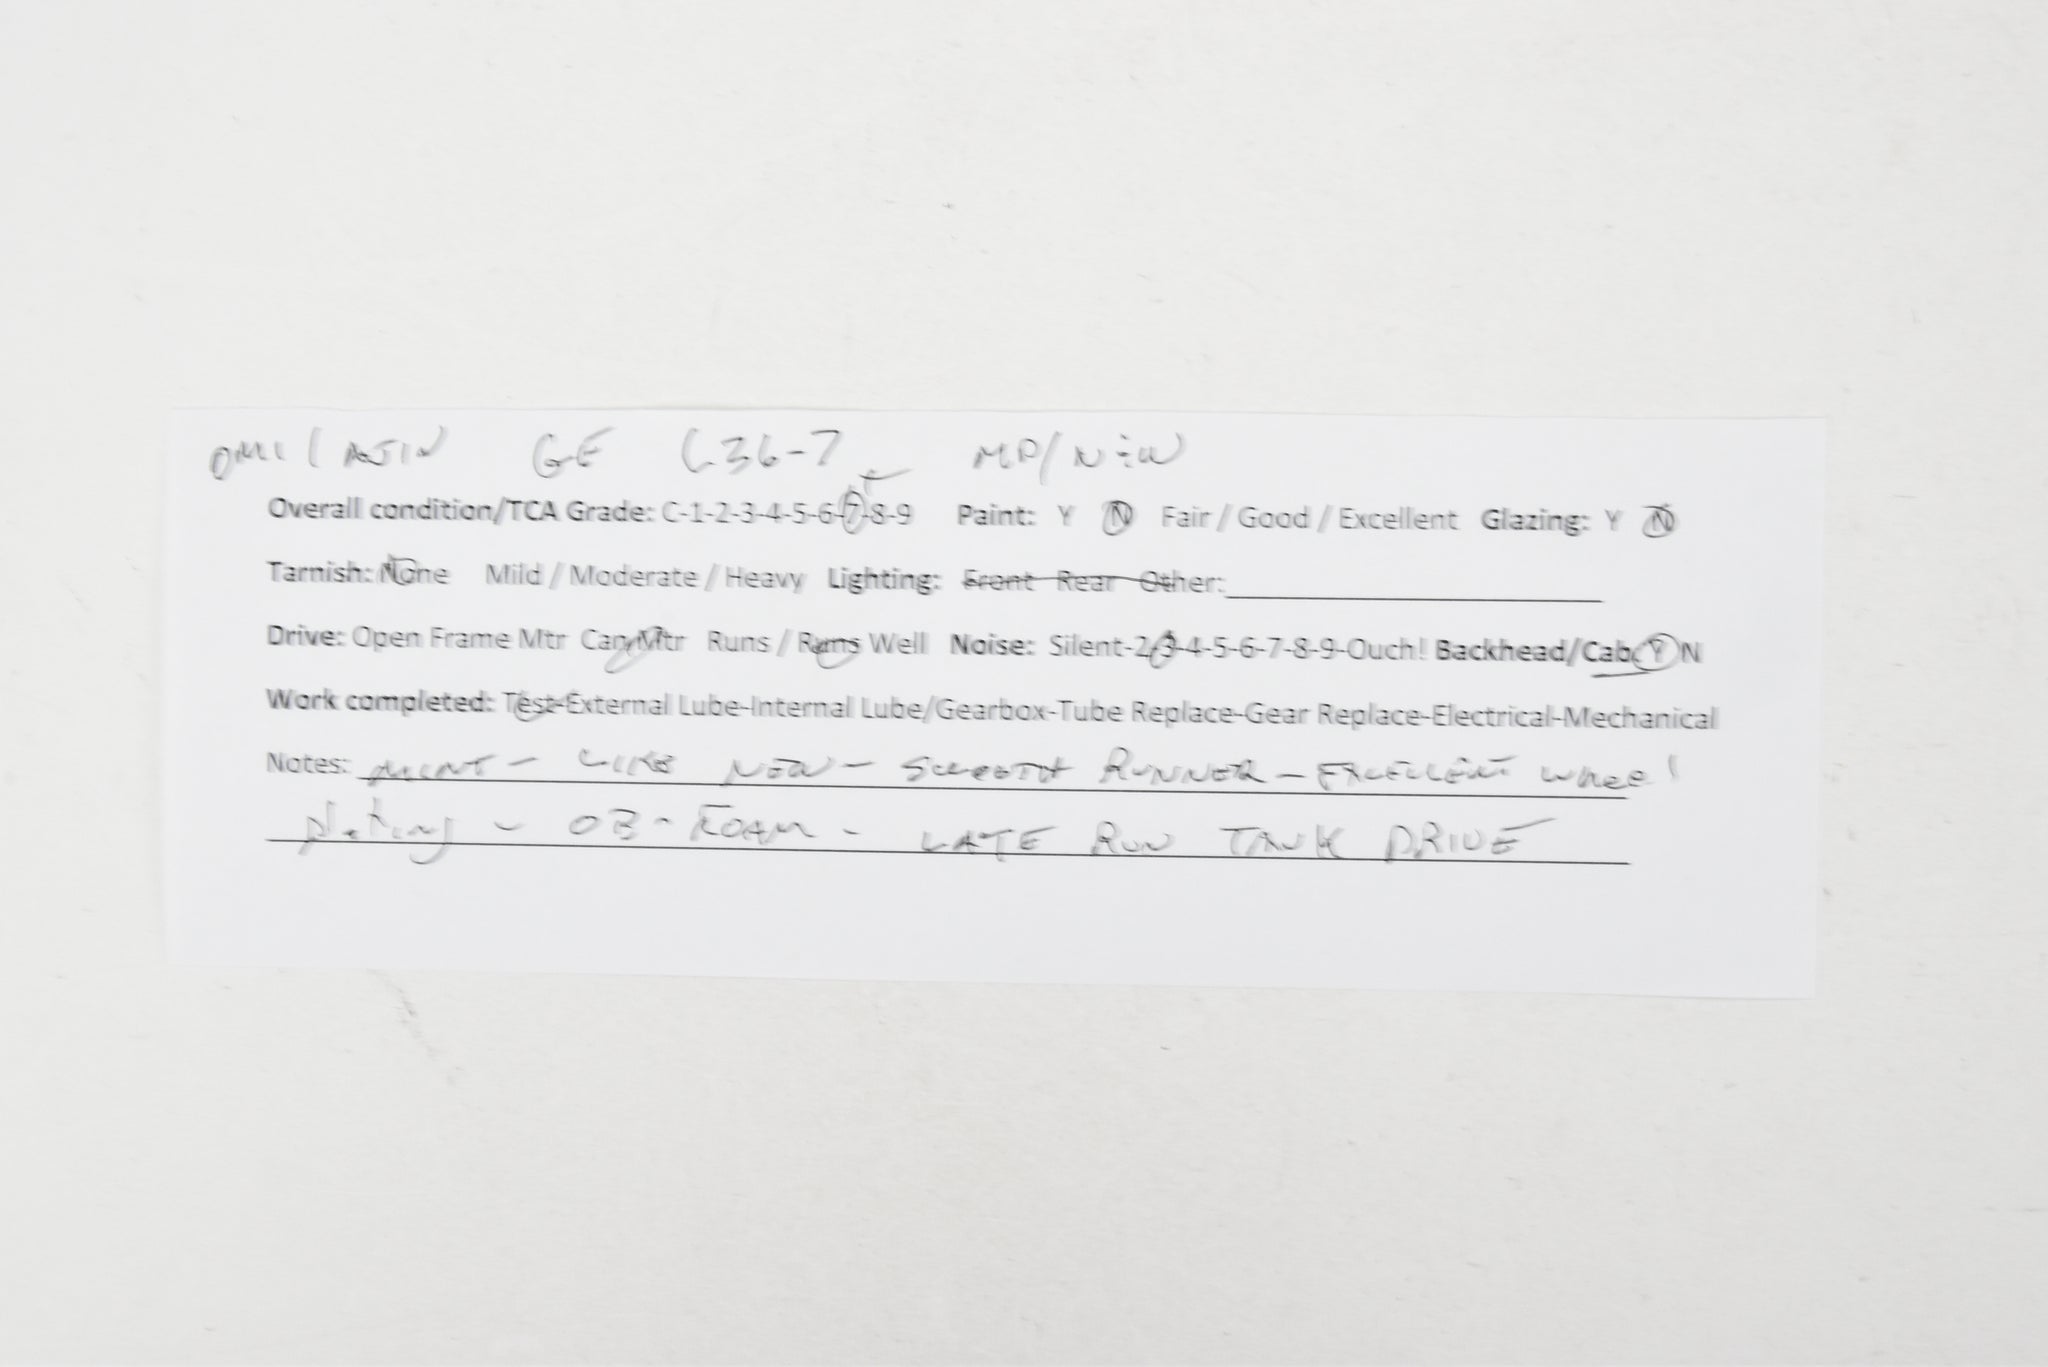 OMI / AJIN GE C36-7 MP/NEW
Overall condition/TCA Grade: C-1-2-3-4-5-6-7-8-9 Paint: Y N Fair / Good / Excellent Glazing: Y N
Tarnish: None Mild / Moderate / Heavy Lighting: Front Rear Other:
Drive: Open Frame Mtr Can Mtr Runs / Runs Well Noise: Silent-2-3-4-5-6-7-8-9-Ouch! Backhead/Cab: Y N
Work completed: Test-External Lube-Internal Lube/Gearbox-Tube Replace-Gear Replace-Electrical-Mechanical
Notes: MINT - LIKE NEW - SMOOTH RUNNER - EXCELLENT wheel
Plating - OB - FOAM - LATE RUN TANK DRIVE